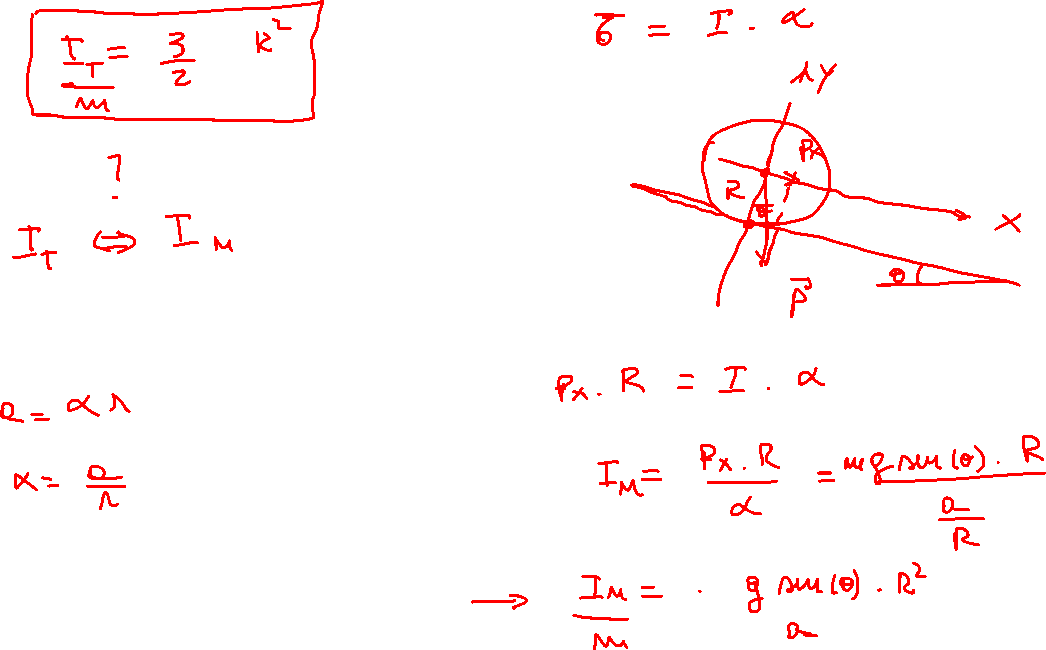 I_T/m = 3/2 R²
?
I_T ⇔ I_M
a = α r
α = a/r
τ = I . α
y
Px
R
x
θ
P⃗
Px . R = I . α
I_M = Px . R/α = mg sen(θ) . R/(a/R)
→ I_M/m = . g sen(θ) . R²/a